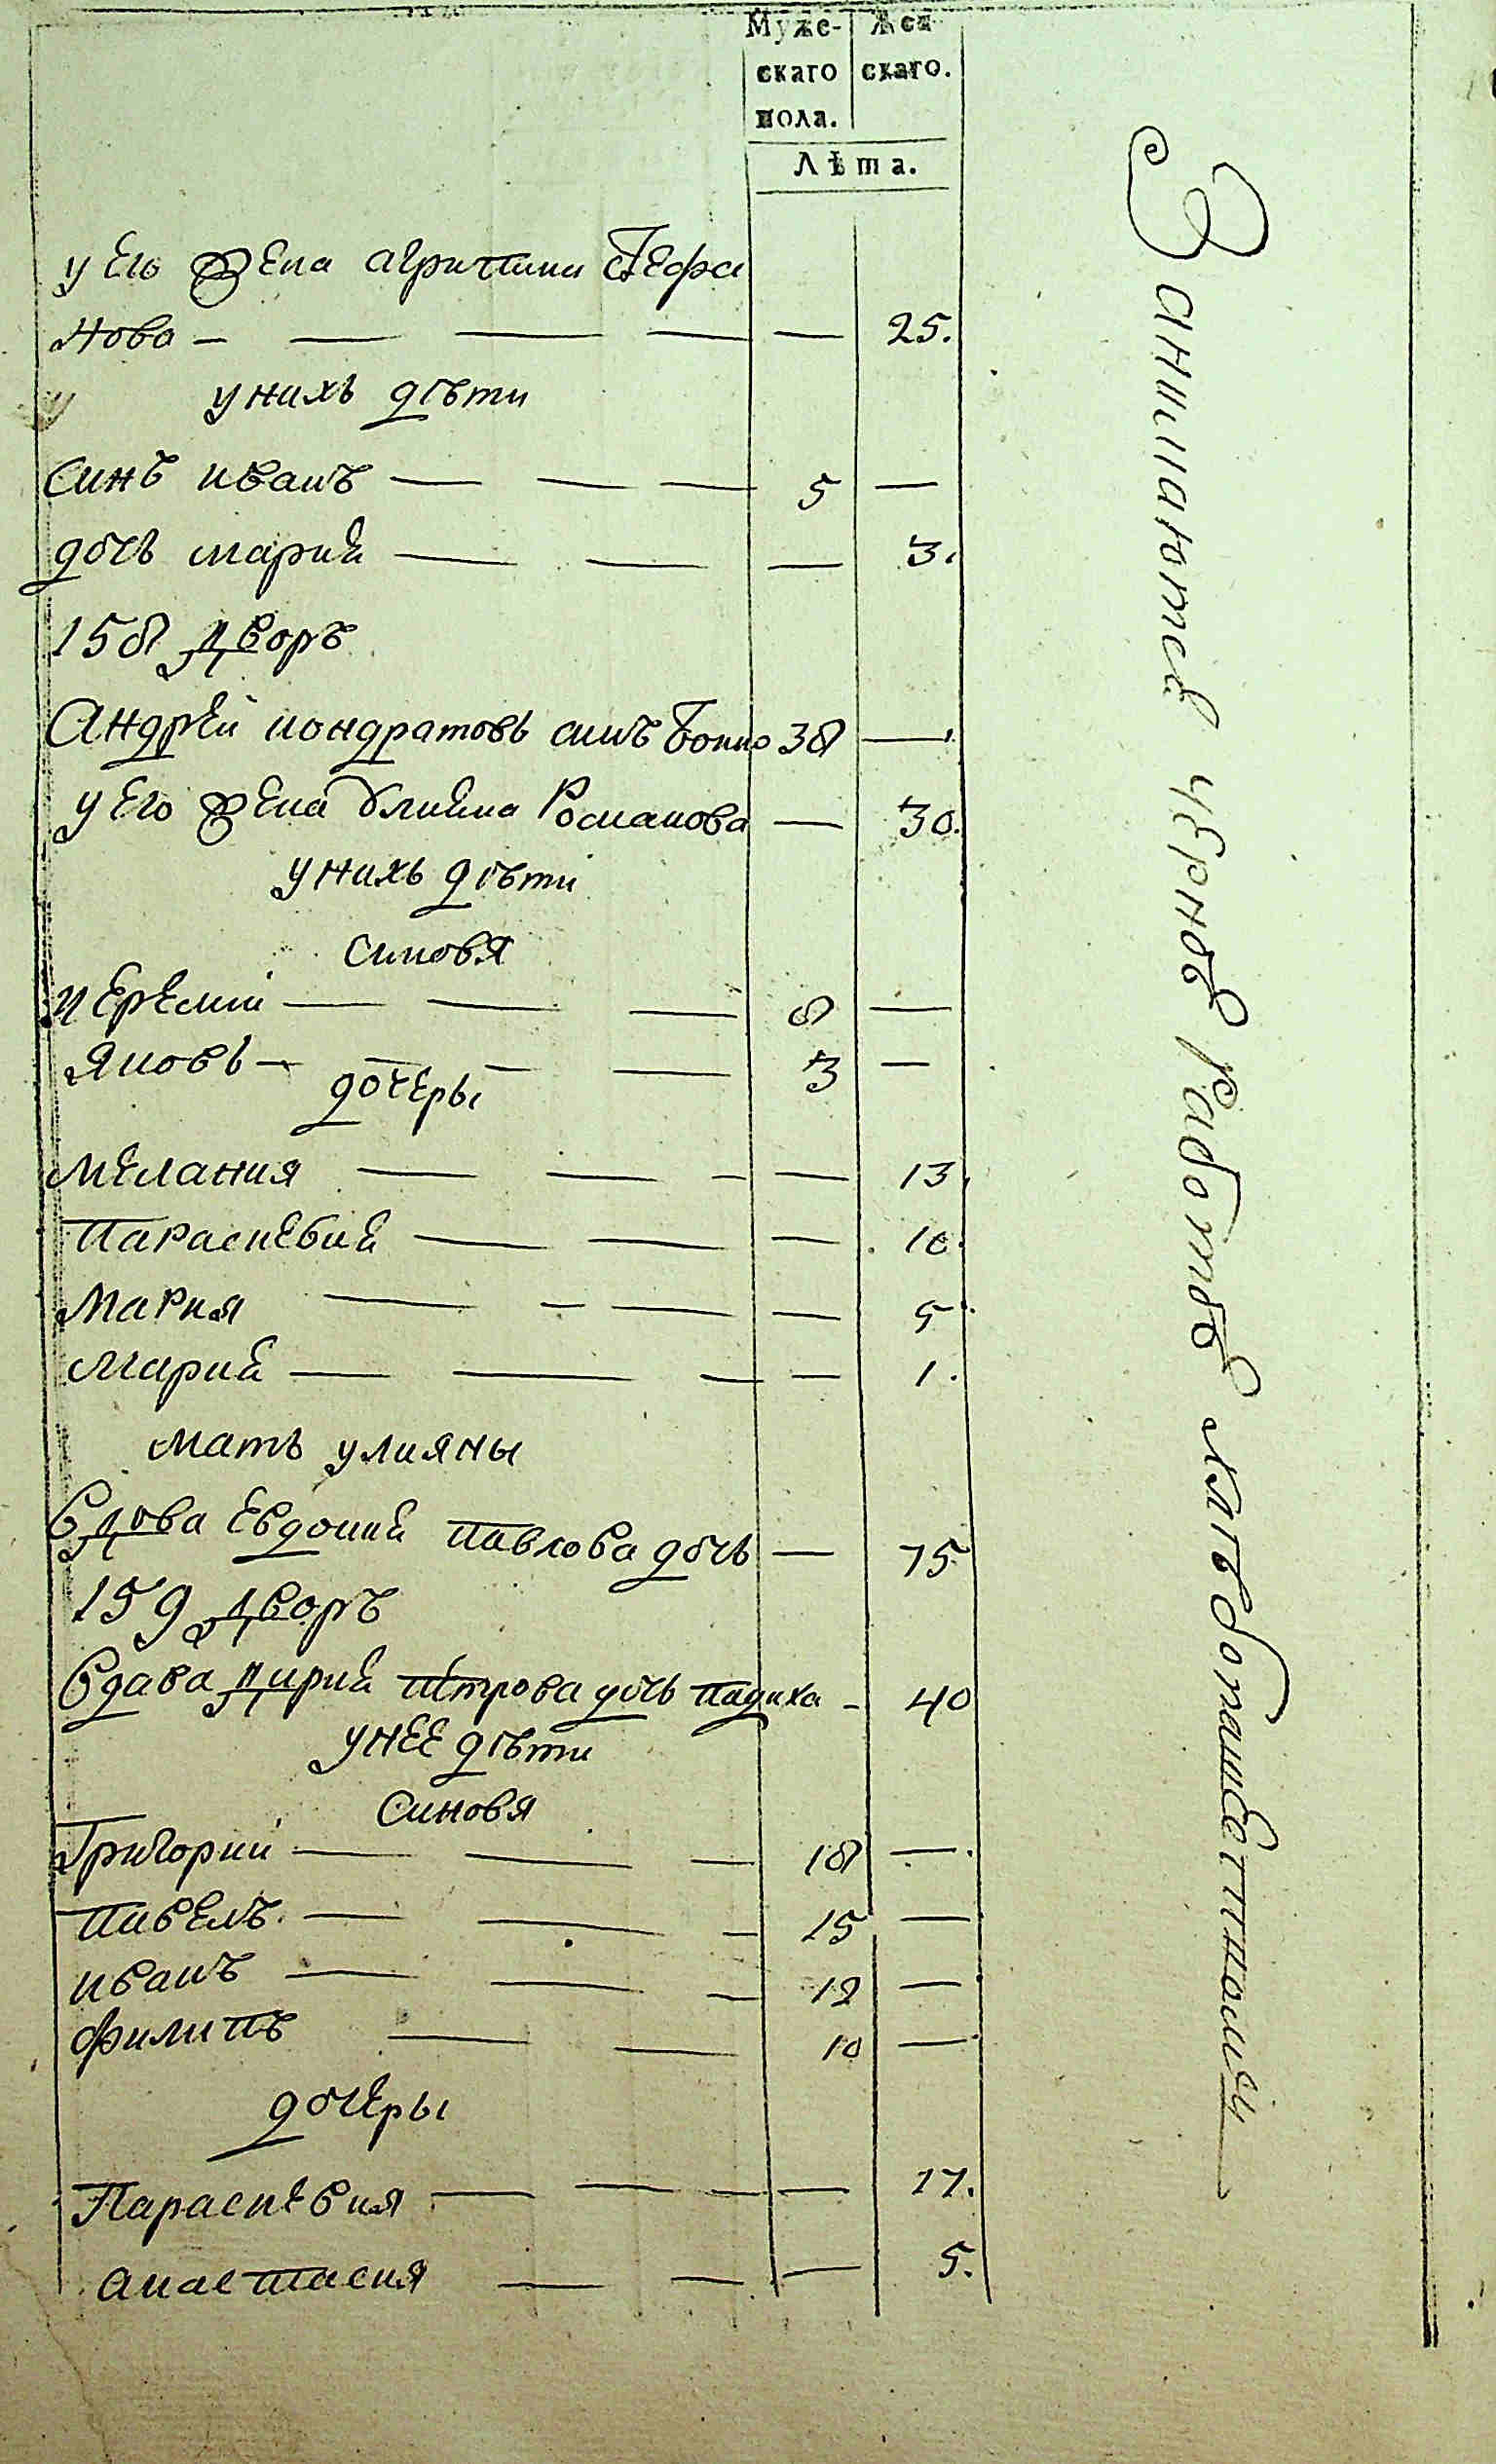 Муже- Жен
скаго скаго.
пола.
Лѣта.
у его жена агрипина Стефа
нова — — — — — 25.
у нихъ дѣти
синъ иванъ — — — 5 —
дочь мария — — — 3.
158 дворъ
Андрей кондратовъ синъ Бонно 38 —
у его жена Улияна Романова — 30.
у нихъ дѣти
синовя
иеремий — — — 8 —
яковъ — — — — 3 —
дочеры
мелания — — — — 13
параскевия — — — 10.
Мария — — — — 5.
мария — — — — 1.
мать улияны
вдова евдокия павлова дочь — 75
159 дворъ
вдава дария петрова дочь — 40
у нее дѣти
синовя
Григорий — — — 18 —
павелъ — — — 15 —
иванъ — — — 12 —
филипъ — — 10 —
дочеры
Параскевия — — — — 17.
анастасия — — — 5.
Занимаются черною работою хлѣбопашествомъ